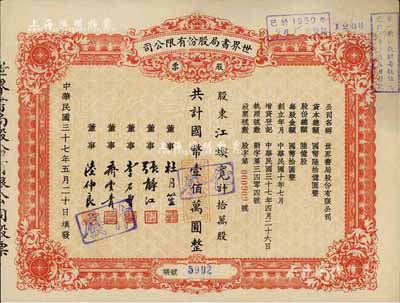 世界書局股份有限公司
股票
公司名稱 世界書局股份有限公司
資本總額 國幣陸拾億圓整
股份總額 陸億股
每股金額 國幣拾圓整
創立年月 中華民國十年七月
增資登記 中華民國三十七年四月二十六日
執照號數 新字第三四零四號
股票號數 股字第000009號
股東江 竟計拾萬股
共計國幣壹佰萬圓整
董事 杜月笙
董事 張靜江
董事 李石曾
董事 齊雲青
董事 陸仲良
中華民國三十七年五月二十日填發
號碼 5992
世界書局股份有限公司股票